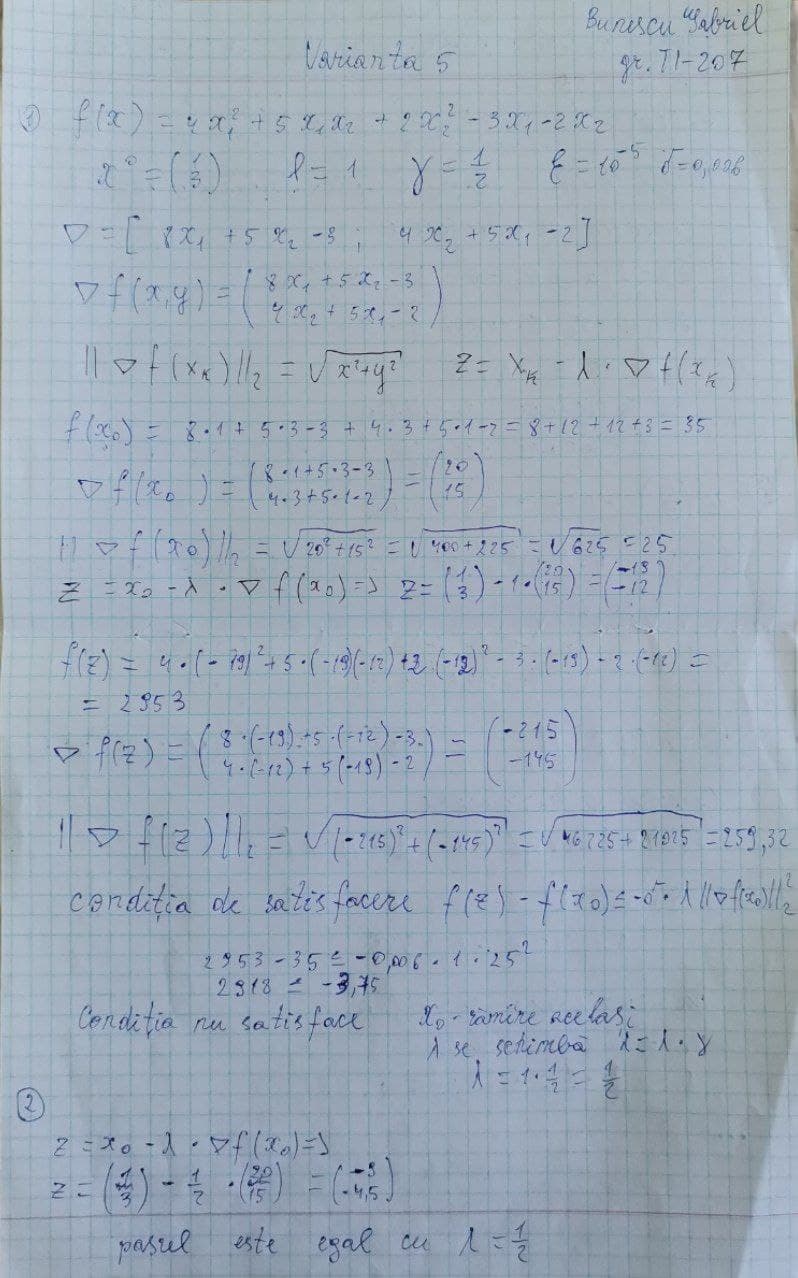 Bunescu Gabriel
Varianta 5 gr. TI-207
1) f(x) = 4x₁² + 5x₁x₂ + 2x₂² - 3x₁ - 2x₂
x⁰ = (1 3) λ = 1 γ = 1/2 ε = 10⁻⁵ σ = 0,006
∇ = [ 8x₁ + 5x₂ - 3 ; 4x₂ + 5x₁ - 2 ]
∇f(x,y) = (8x₁ + 5x₂ - 3
4x₂ + 5x₁ - 2)
||∇f(xₖ)||₂ = √(x²+y²) z = xₖ - λ · ∇f(xₖ)
f(x₀) = 8·1 + 5·3-3 + 4·3 + 5·1-2 = 8+12+12+3 = 35
∇f(x₀) = (8·1+5·3-3
4·3+5·1-2) = (20 15)
||∇f(x₀)||₂ = √(20²+15²) = √(400+225) = √625 = 25
z = x₀ - λ · ∇f(x₀) => z = (1 3) - 1·(20 15) = (-19 -12)
f(z) = 4·(-19)² + 5·(-19)(-12) + 2·(-12)² - 3·(-19) - 2·(-12) =
= 2953
∇f(z) = (8·(-19) + 5·(-12) - 3
4·(-12) + 5(-19) - 2) = (-215 -145)
||∇f(z)||₂ = √((-215)² + (-145)²) = √(46225 + 21025) = 259,32
condiția de satisfacere f(z) - f(x₀) ≤ -σ · λ||∇f(x₀)||₂²
2953 - 35 ≤ -0,006 · 1 · 25²
2918 ≤ -3,75
Condiția nu satisface x₀ - rămîne același
λ se schimbă λ = λ · γ
λ = 1·1/2 = 1/2
2
z = x₀ - λ · ∇f(x₀) =>
z = (1 3) - 1/2 · (20 15) = (-9 -4,5)
pasul este egal cu λ = 1/2